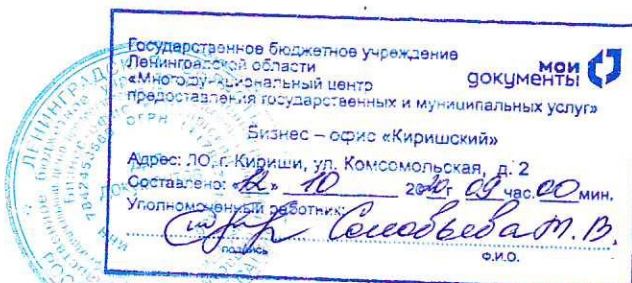 Государственное бюджетное учреждение
Ленинградской области
«Многофункциональный центр
предоставления государственных и муниципальных услуг»
мои
документы
Бизнес – офис «Киришский»
Адрес: ЛО, г. Кириши, ул. Комсомольская, д. 2
Составлено: «12» 10 2020г 09 час. 00 мин.
Уполномоченный работник:
Соловьева М. В.
подпись Ф.И.О.